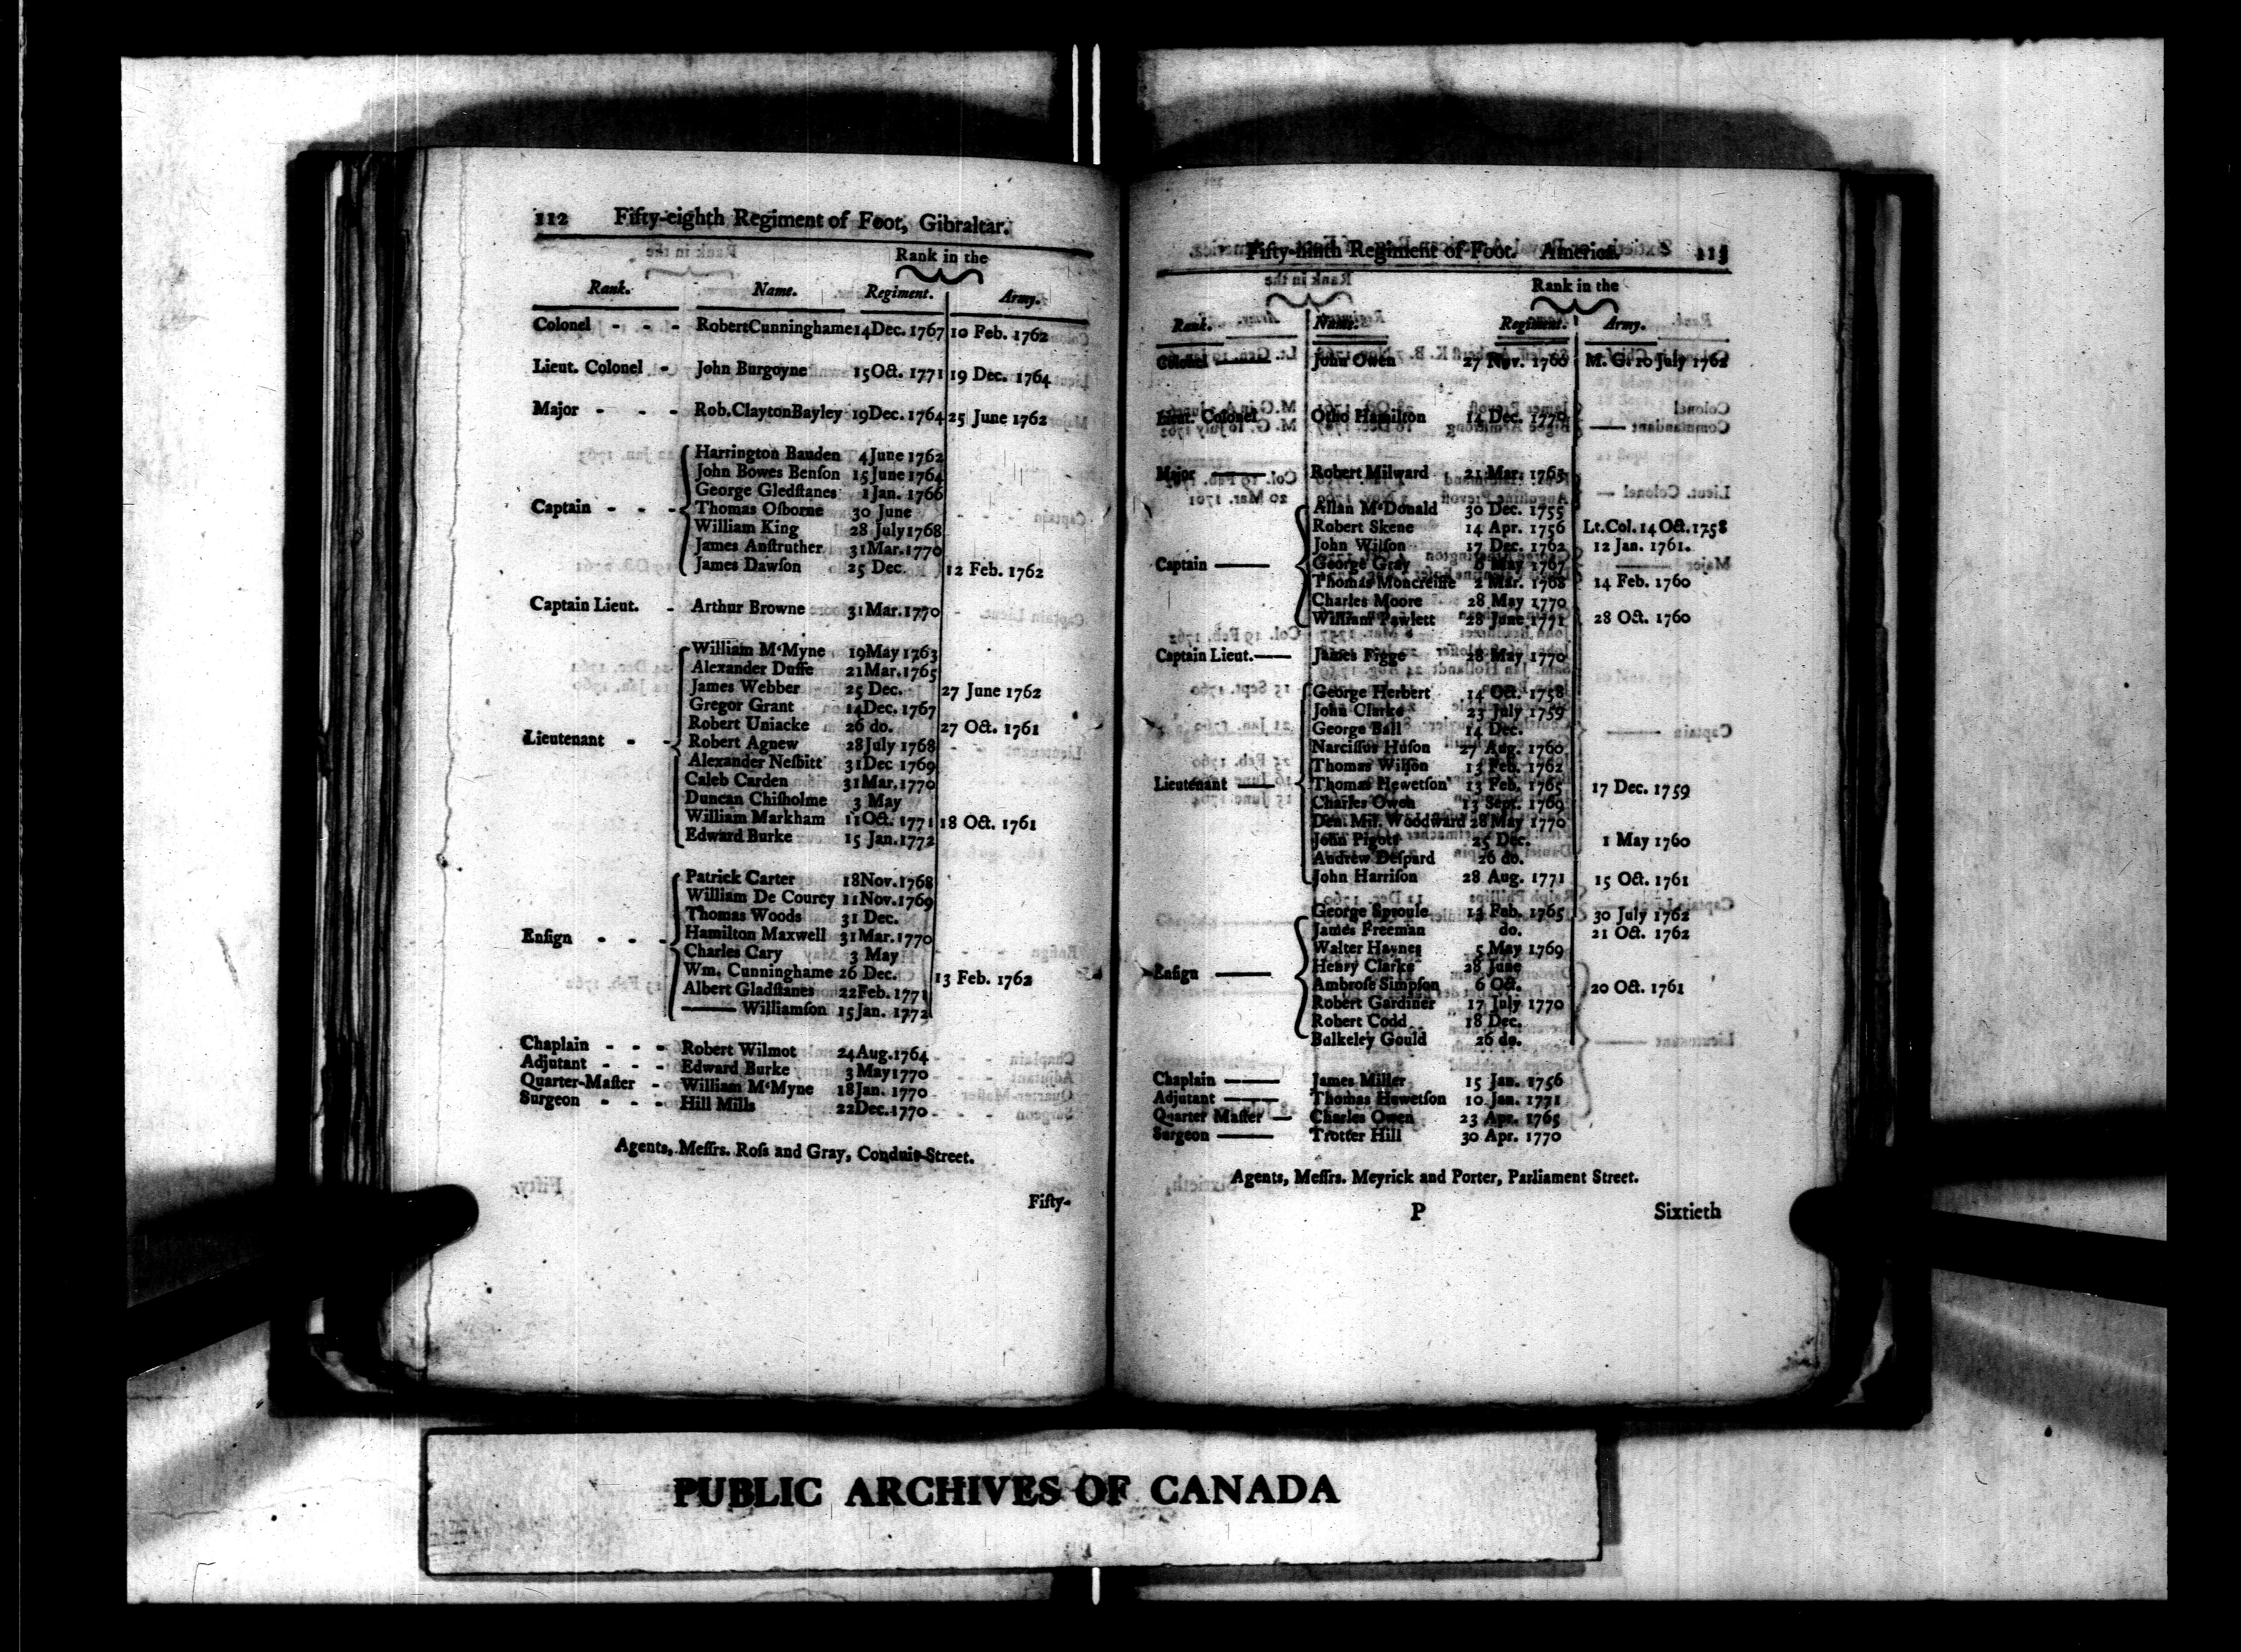 112 Fifty-eighth Regiment of Foot, Gibraltar.
Rank in the
Rank. Name. Regiment. Army.
Colonel - - - RobertCunninghame 14Dec. 1767 10 Feb. 1762
Lieut. Colonel - John Burgoyne 15Oct. 1771 19 Dec. 1764
Major - - - Rob.ClaytonBayley 19Dec. 1764 25 June 1762
Harrington Bauden 4June 1762
John Bowes Benſon 15June 1764
George Gledſtanes 1Jan. 1766
Captain - - - Thomas Oſborne 30 June
William King 28 July1768
James Anſtruther 31Mar.1770
James Dawſon 25 Dec. 12 Feb. 1762
Captain Lieut. - Arthur Browne 31Mar.1770
William M'Myne 19May 1763
Alexander Duffe 21Mar.1765
James Webber 25 Dec. 27 June 1762
Gregor Grant 14Dec. 1767
Robert Uniacke 26 do. 27 Oct. 1761
Lieutenant - - Robert Agnew 28July 1768
Alexander Neſbitt 31Dec 1769
Caleb Carden 31Mar.1770
Duncan Chiſholme 3 May
William Markham 11Oct. 1771 18 Oct. 1761
Edward Burke 15 Jan.1772
Patrick Carter 18Nov.1768
William De Courcy 11Nov.1769
Thomas Woods 31 Dec.
Enſign - - - Hamilton Maxwell 31Mar.1770
Charles Cary 3 May
Wm. Cunninghame 26 Dec. 13 Feb. 1762
Albert Gladſtanes 22Feb. 1771
—— Williamſon 15Jan. 1772
Chaplain - - - Robert Wilmot 24Aug.1764
Adjutant - - - Edward Burke 3May1770
Quarter-Maſter - William M'Myne 18Jan. 1770
Surgeon - - - Hill Mills 22Dec.1770
Agents, Meſſrs. Roſs and Gray, Conduit-Street.
Fifty-
Fifty-ninth Regiment of Foot. America. 113
Rank in the
Rank. Name. Regiment. Army.
Colonel —— John Owen 27 Nov. 1760 M. G. 10 July 1762
Lieut. Colonel Otho Hamilton 14 Dec. 1770
Major —— Robert Milward 21 Mar. 1765
Allan M'Donald 30 Dec. 1755
Robert Skene 14 Apr. 1756 Lt.Col. 14Oct.1758
John Wilſon 17 Dec. 1762 12 Jan. 1761.
Captain —— George Gray 6 May 1767
Thomas Moncreiffe 2 Mar. 1768 14 Feb. 1760
Charles Moore 28 May 1770
William Pawlett 28 June 1771 28 Oct. 1760
Captain Lieut.—— James Figge 28 May 1770
George Herbert 14 Oct. 1758
John Clarke 23 July 1759
George Ball 14 Dec.
Narciſſus Huſon 27 Aug. 1760
Thomas Wilſon 13 Feb. 1762
Lieutenant —— Thomas Hewetſon 13 Feb. 1765 17 Dec. 1759
Charles Owen 13 Sept. 1769
Den. Mil. Woodward 28May 1770
John Pigott 25 Dec. 1 May 1760
Andrew Deſpard 26 do.
John Harriſon 28 Aug. 1771 15 Oct. 1761
George Sproule 13 Feb. 1765 30 July 1762
James Freeman do. 21 Oct. 1762
Walter Haynes 5 May 1769
Enſign —— Henry Clarke 28 June
Ambroſe Simpſon 6 Oct. 20 Oct. 1761
Robert Gardiner 17 July 1770
Robert Codd 18 Dec.
Balkeley Gould 26 do.
Chaplain —— James Miller 15 Jan. 1756
Adjutant —— Thomas Hewetſon 10 Jan. 1771
Quarter Maſter — Charles Owen 23 Apr. 1765
Surgeon —— Trotter Hill 30 Apr. 1770
Agents, Meſſrs. Meyrick and Porter, Parliament Street.
P Sixtieth
PUBLIC ARCHIVES OF CANADA